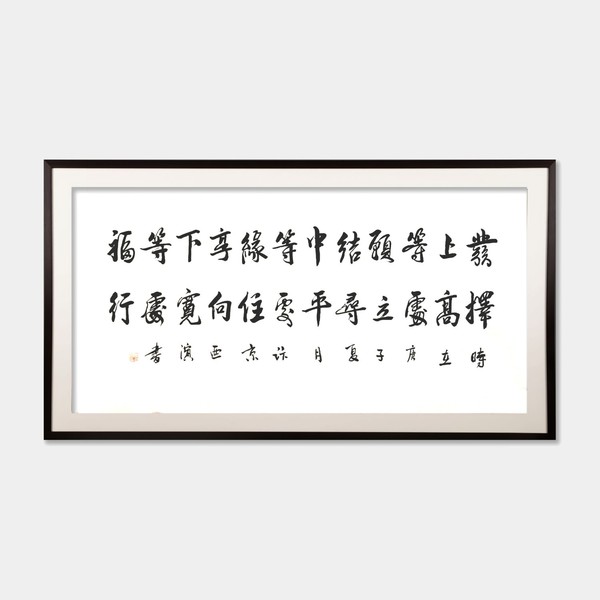 發上等願結中等緣享下等福
擇高處立尋平處住向寬處行
時在庚子夏月於京西書